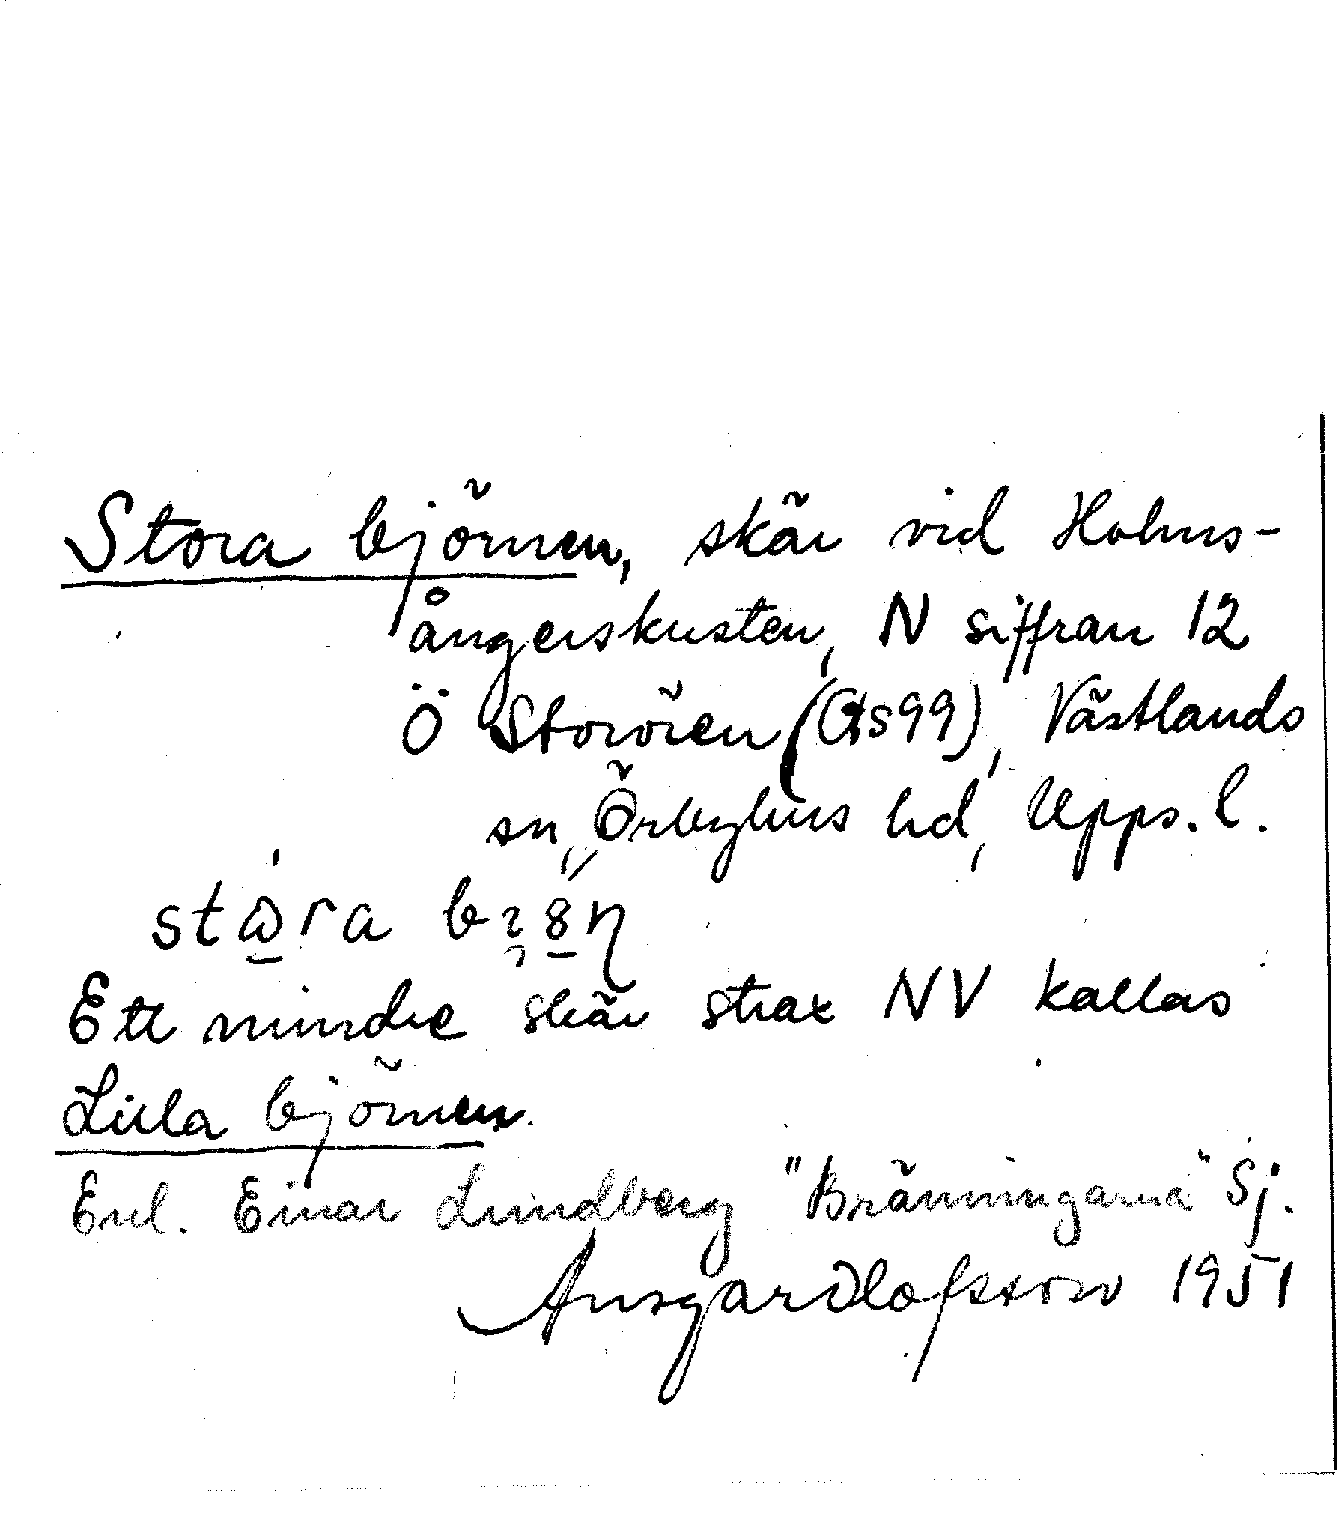 Stora björnen, skär vid Holms-
ångerskusten, N siffran 12
Ö Storören (Gs99), Västlands
sn, Örbyhus hd, Upps. l.
Ett mindre skär strax NV kallas
Lilla björnen.
Enl. Einar Lundberg "Bränningarna" Sj.
Ansgar Olofsson 1951